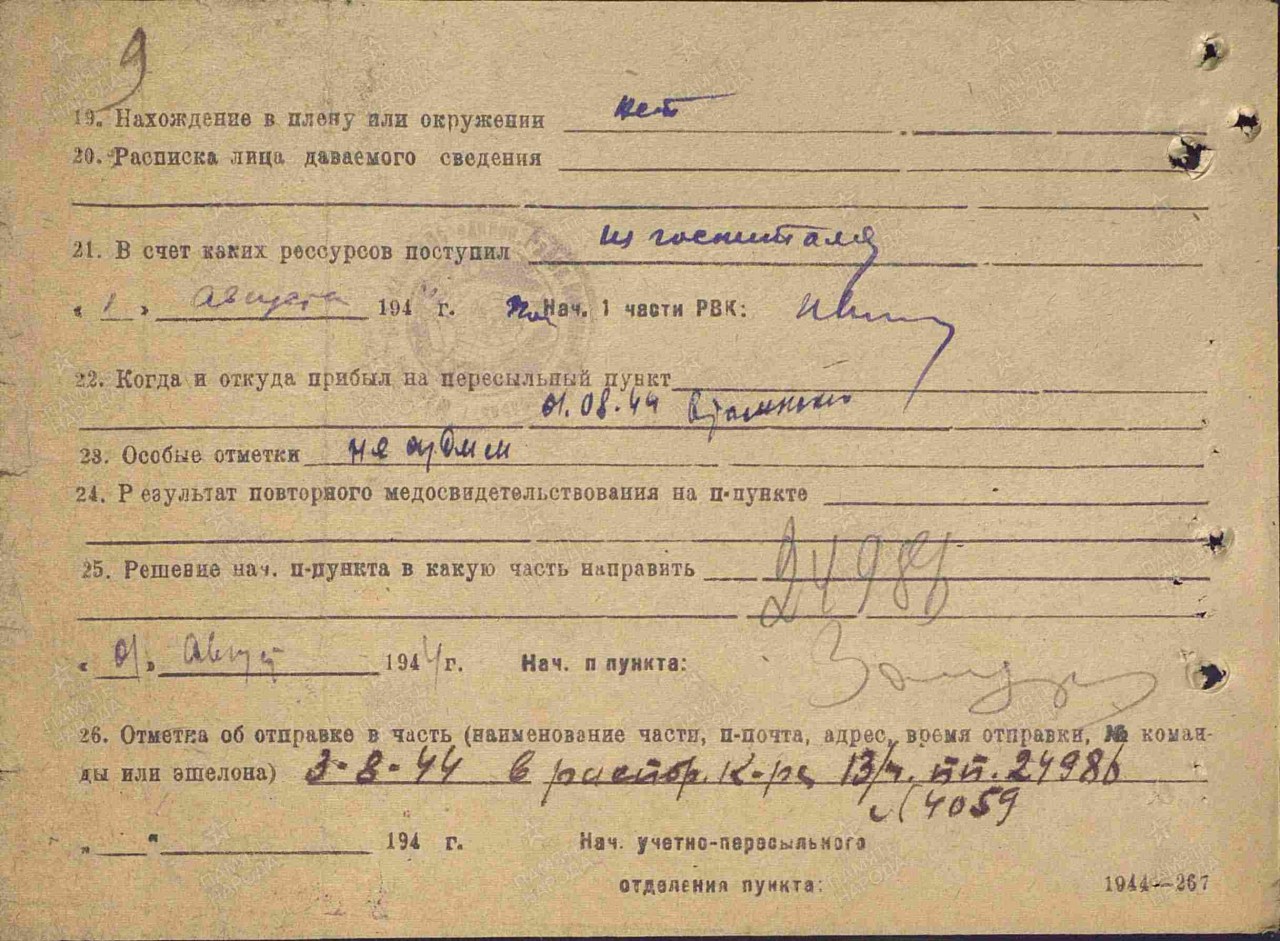 9
19. Нахождение в плену или окружении нет
20. Расписка лица даваемого сведения
21. В счет каких рессурсов поступил из госпиталя
« 1 » августа 194 г. Нач. 1 части РВК:
22. Когда и откуда прибыл на пересыльный пункт
01.08.44
23. Особые отметки не судим
24. Результат повторного медосвидетельствования на п-пункте
25. Решение нач. п-пункта в какую часть направить 24986
« 01 » Август 1944 г. Нач. п пункта:
26. Отметка об отправке в часть (наименование части, п-почта, адрес, время отправки, № коман-
ды или эшелона) 3-8-44 в распор. к-ра в/ч. пп. 24986
4059
„ “ 194 г. Нач. учетно-пересыльного
отделения пункта: 1944—267